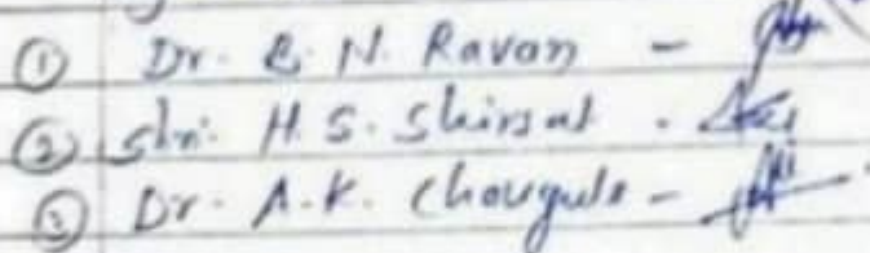 ① Dr. R. N. Ravan -
② Shri. H. S. Shirsat .
③ Dr. A. K. Chougule -